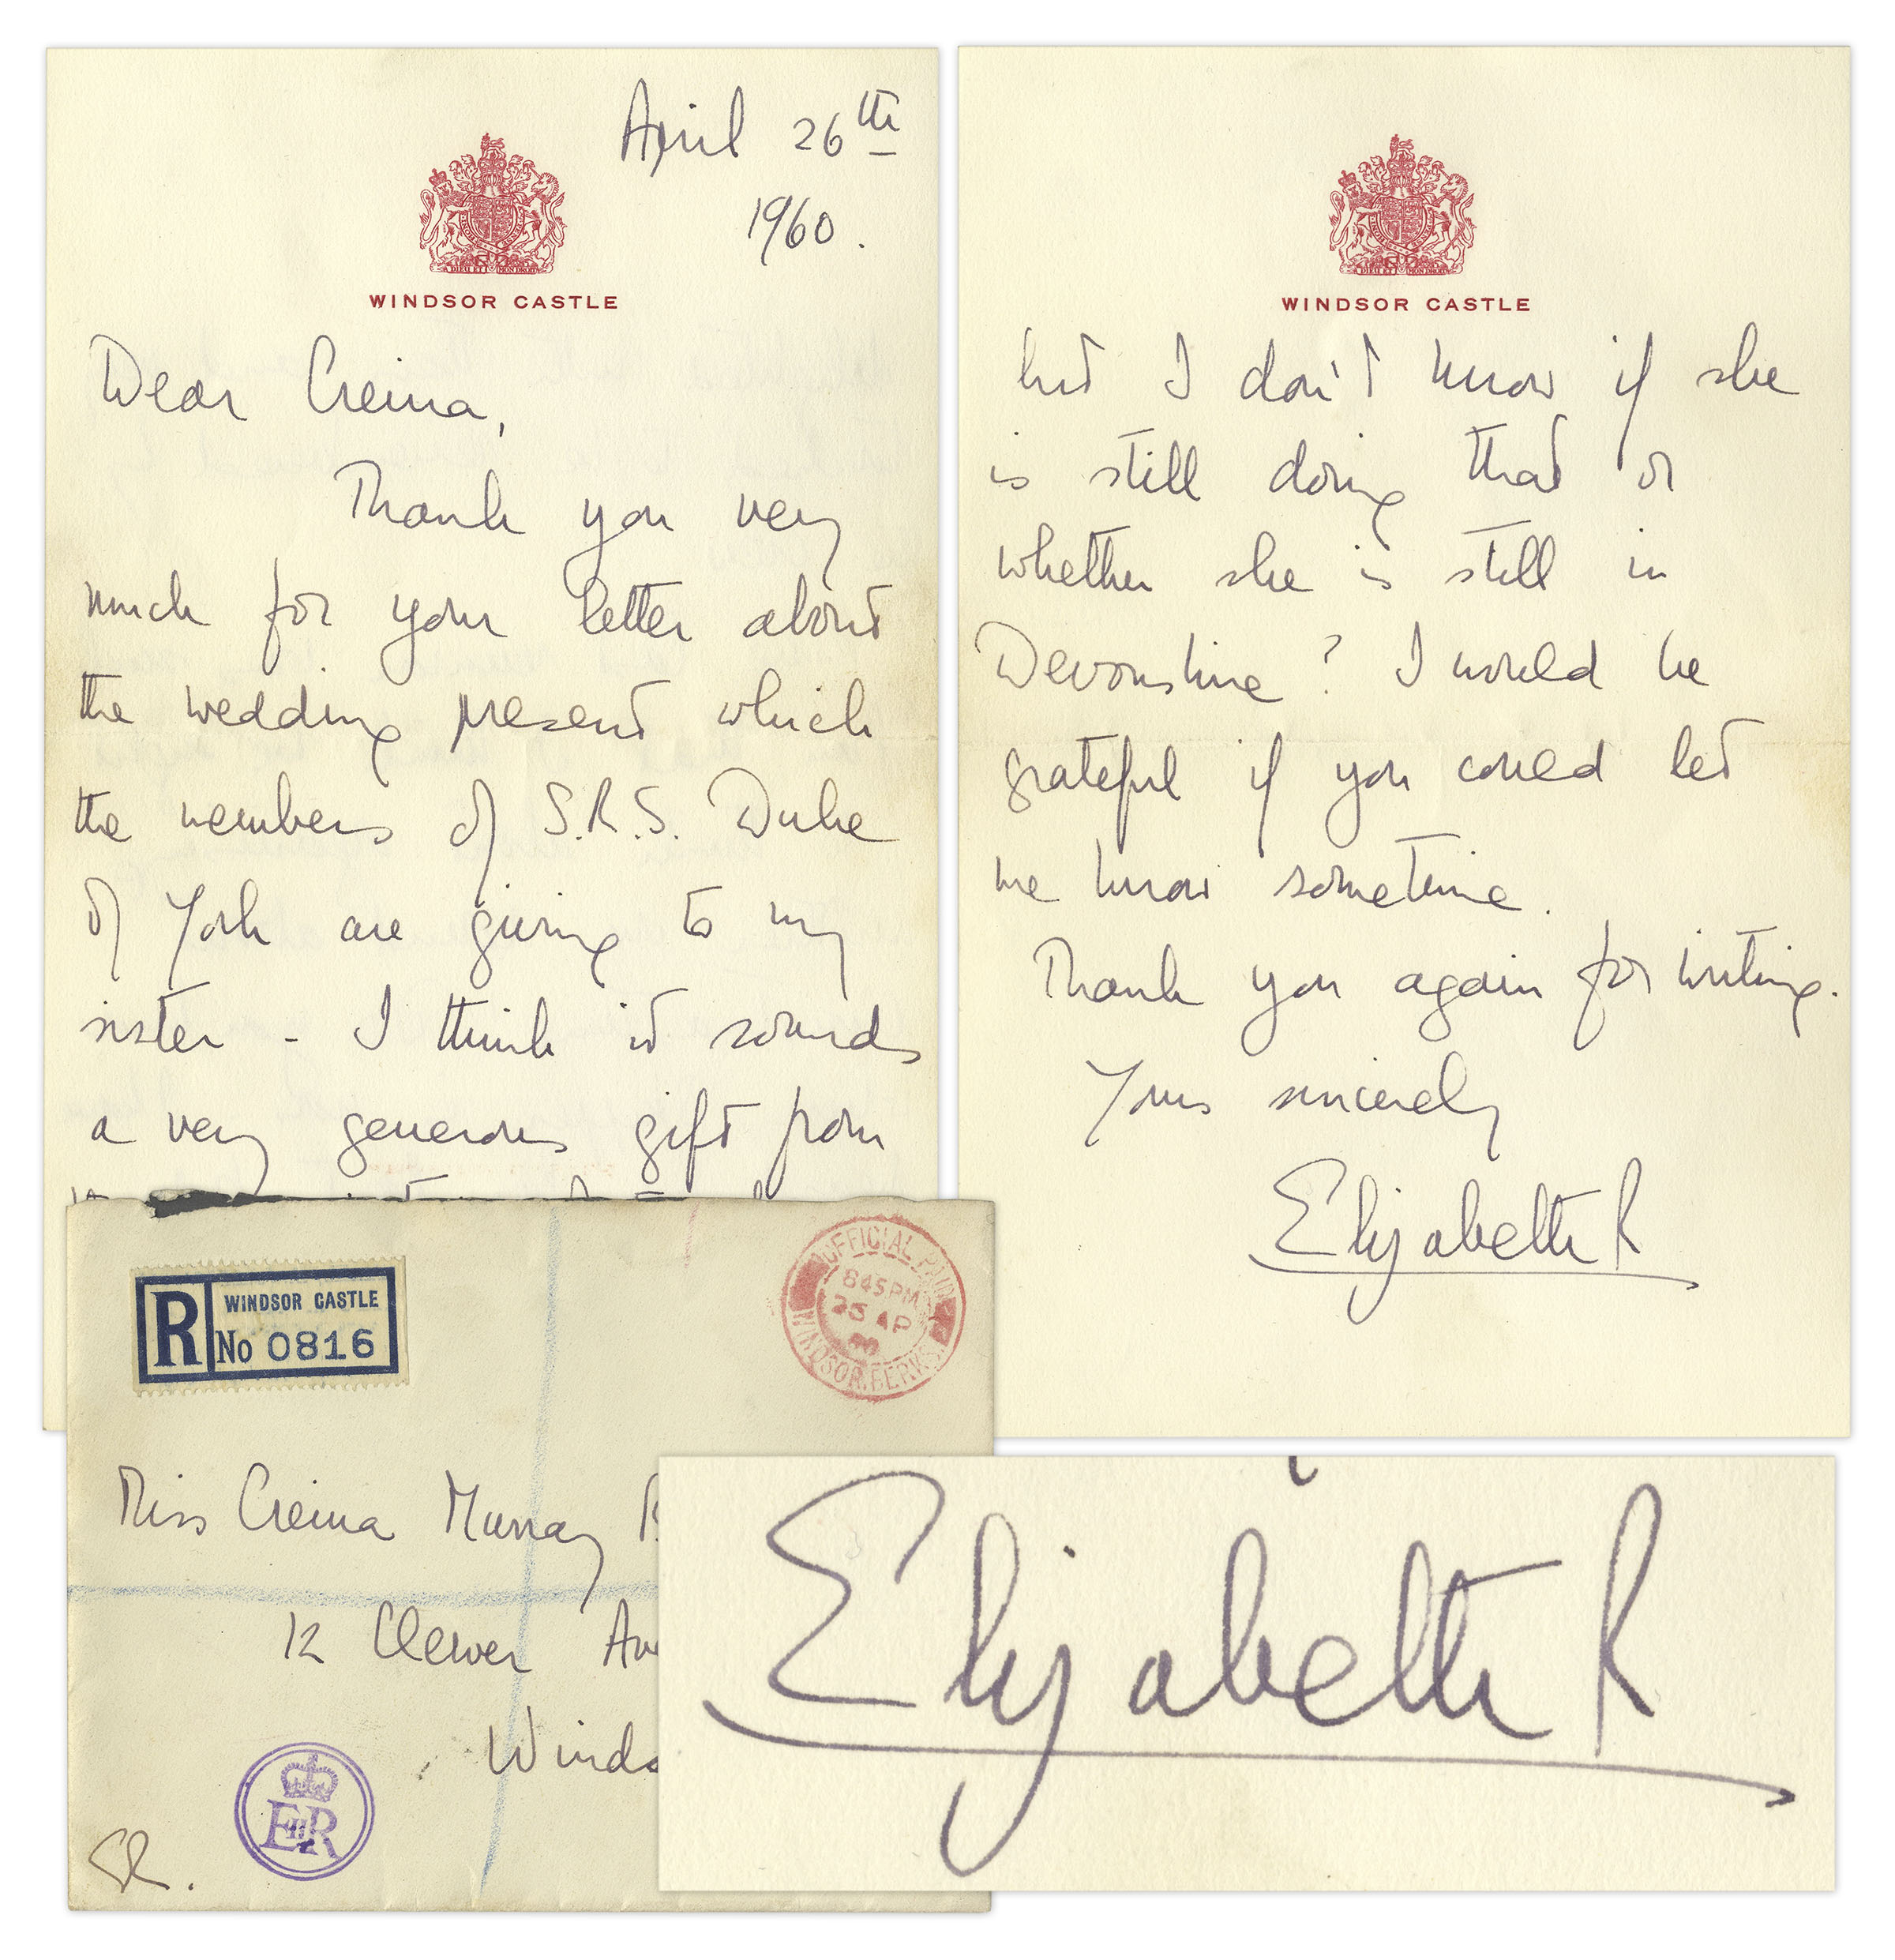 April 26th
1960.
WINDSOR CASTLE
Dear Creina,
Thank you very
much for your letter about
the wedding present which
the members of S.R.S. Duke
of York are giving to my
sister - I think it sounds
a very generous gift from
WINDSOR CASTLE
but I don't know if she
is still doing that or
whether she is still in
Devonshire? I would be
grateful if you could let
me know sometime.
Thank you again for writing.
Yours sincerely
Elizabeth R
R WINDSOR CASTLE
No 0816
OFFICIAL PAID
845 PM
25 AP
WINDSOR. BERKS
Miss Creina Murray
12 Clewer
EIIR
ER.
Elizabeth R